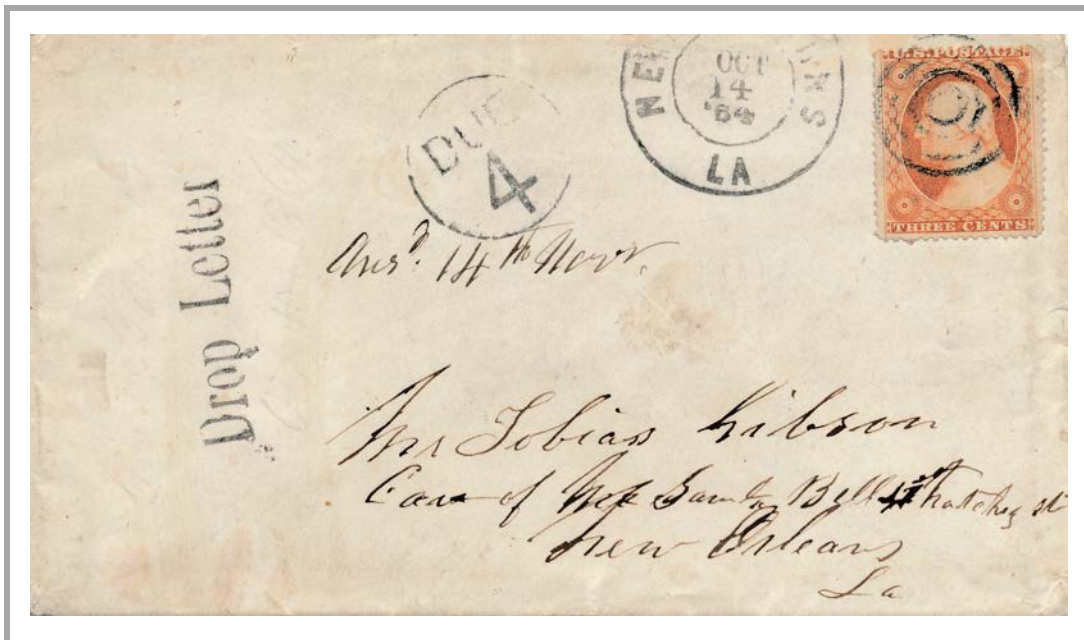 Drop Letter
DUE
4
NE
OCT
14
'64
LA
U.S. POSTAGE.
THREE CENTS
Ansd. 14th Novr.
Mr Tobias Gibson
Care of Bell Natchez st
New Orleans
La